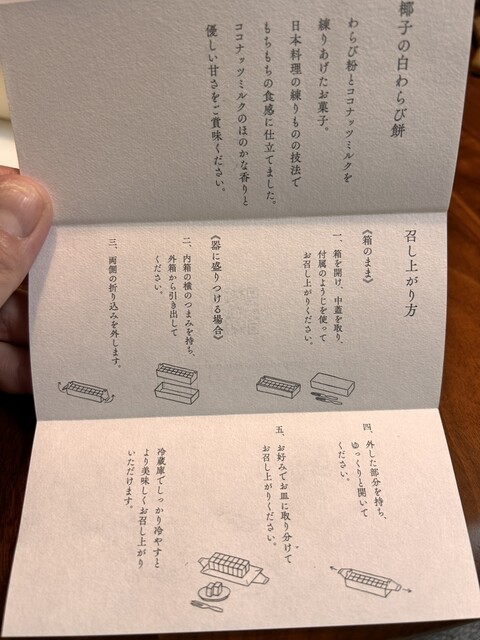 椰子の白わらび餅
わらび粉とココナッツミルクを
練りあげたお菓子。
日本料理の練りものの技法で
もちもちの食感に仕立てました。
ココナッツミルクのほのかな香りと
優しい甘さをご賞味ください。
召し上がり方
《箱のまま》
一、箱を開け、中蓋を取り、
付属のようじを使って
お召し上がりください。
《器に盛りつける場合》
二、内箱の横のつまみを持ち、
外箱から引き出して
ください。
三、両側の折り込みを外します。
四、外した部分を持ち、
ゆっくりと開いて
ください。
五、お好みでお皿に取り分けて
お召し上がりください。
冷蔵庫でしっかり冷やすと
より美味しくお召し上がり
いただけます。